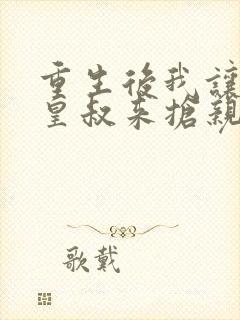 重生後我讓
皇叔来搶親
歌戴